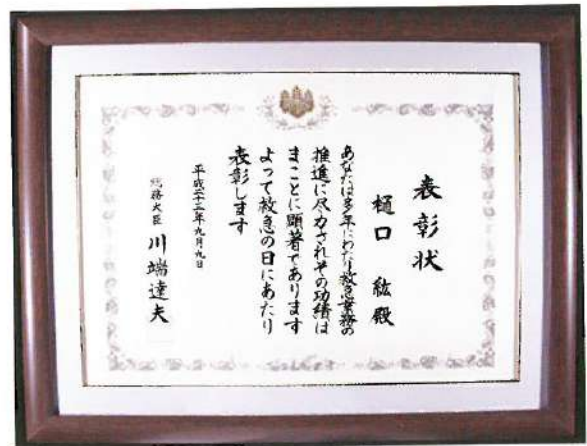 表彰状
樋口 紘殿
あなたは多年にわたり救急業務の
推進に尽力されその功績は
まことに顕著であります
よって救急の日にあたり
表彰します
平成二十三年九月九日
総務大臣 川端達夫